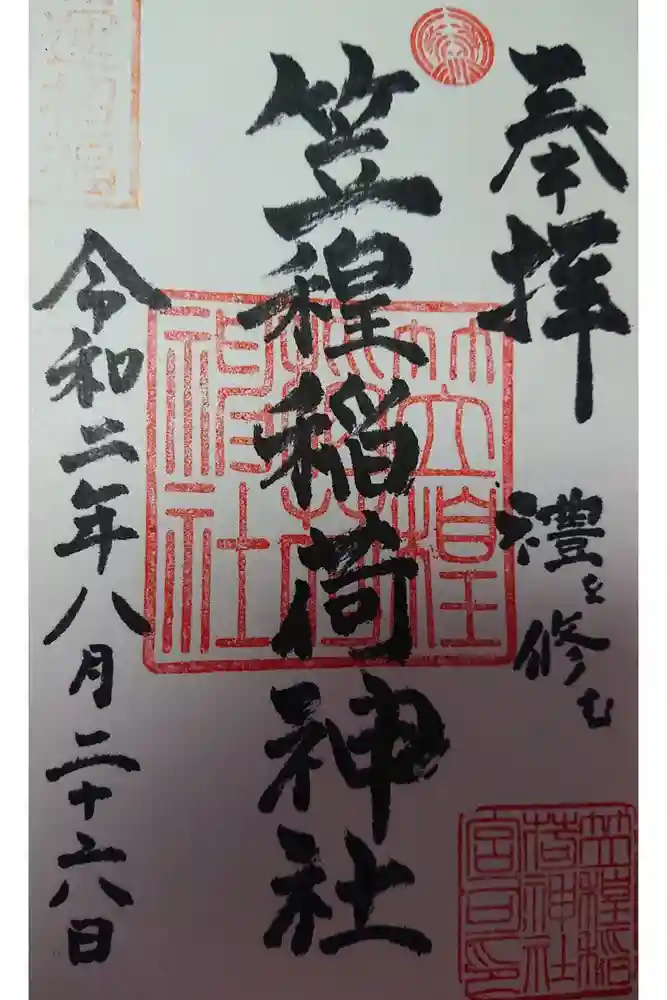 奉拝
禮を修む
笠䅣稲荷神社
令和二年八月二十六日
笠䅣稲荷神社
笠䅣稲荷神社宮司之印